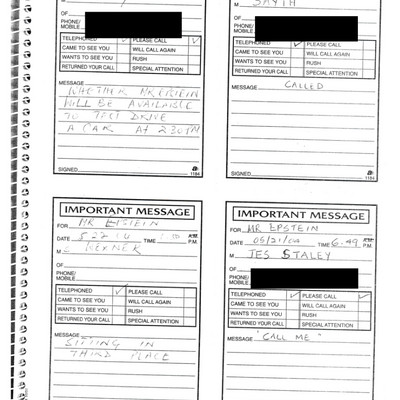 OF
PHONE/
MOBILE
TELEPHONED PLEASE CALL
CAME TO SEE YOU WILL CALL AGAIN
WANTS TO SEE YOU RUSH
RETURNED YOUR CALL SPECIAL ATTENTION
MESSAGE
WHETHER MR EPSTEIN
WILL BE AVAILABLE
TO TEST DRIVE
A CAR AT 2:30 PM
SIGNED
1184
OF
PHONE/
MOBILE
TELEPHONED PLEASE CALL
CAME TO SEE YOU WILL CALL AGAIN
WANTS TO SEE YOU RUSH
RETURNED YOUR CALL SPECIAL ATTENTION
MESSAGE
CALLED
SIGNED
1184
IMPORTANT MESSAGE
FOR MR EPSTEIN
DATE TIME A.M. P.M.
M
OF
PHONE/
MOBILE
TELEPHONED PLEASE CALL
CAME TO SEE YOU WILL CALL AGAIN
WANTS TO SEE YOU RUSH
RETURNED YOUR CALL SPECIAL ATTENTION
MESSAGE
SITTING IN
THIRD PLACE
IMPORTANT MESSAGE
FOR MR EPSTEIN
DATE 05/21/04 TIME 6.49 A.M. P.M.
M JES STALEY
OF
PHONE/
MOBILE
TELEPHONED PLEASE CALL
CAME TO SEE YOU WILL CALL AGAIN
WANTS TO SEE YOU RUSH
RETURNED YOUR CALL SPECIAL ATTENTION
MESSAGE
"CALL ME"